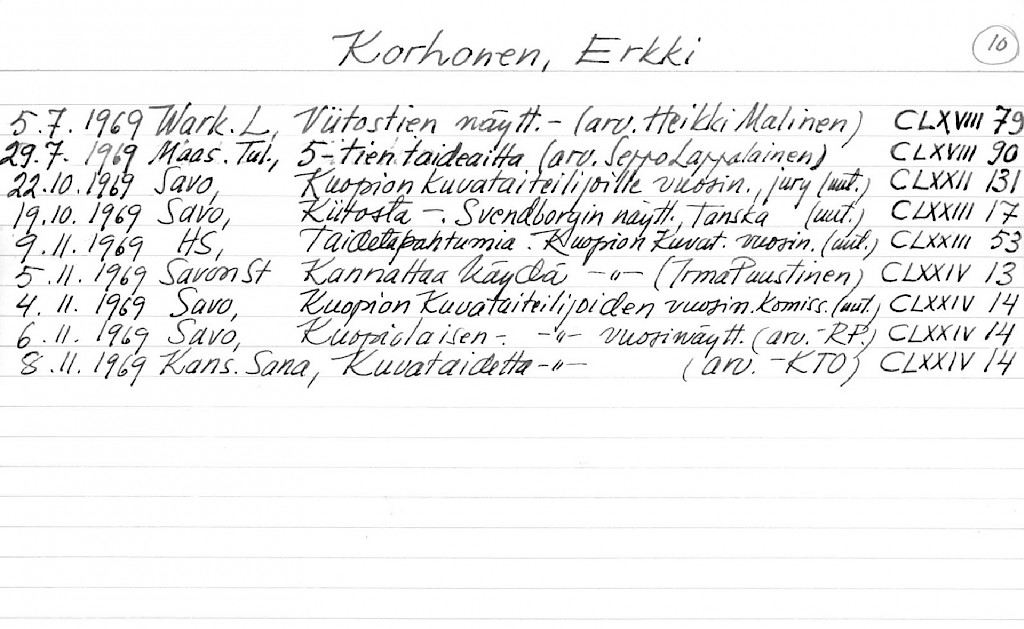 Korhonen, Erkki 10
5.7. 1969 Wark. L, Viitostien näytt. - (arv. Heikki Malinen) CLXVIII 79
29.7. 1969 Maas. Tul., 5-tien taideaitta (arv. Seppo Lappalainen) CLXVIII 90
22.10. 1969 Savo, Kuopion Kuvataiteilijoille vuosin., jury (uut.) CLXXII 131
19.10. 1969 Savo, Kiitosta -. Svendborgin näytt., Tanska (uut.) CLXXIII 17
9.11. 1969 HS, Taidetapahtumia. Kuopion Kuvat. vuosin. (uut.) CLXXIII 53
5.11. 1969 Savon St Kannattaa käydä -"- (Irma Puustinen) CLXXIV 13
4.11. 1969 Savo, Kuopion Kuvataiteilijoiden vuosin. Komiss. (uut.) CLXXIV 14
6.11. 1969 Savo, Kuopiolaisen -. -"- vuosinäytt. (arv. - RP.) CLXXIV 14
8.11. 1969 Kans. Sana, Kuvataidetta -"- (arv. - KTO) CLXXIV 14